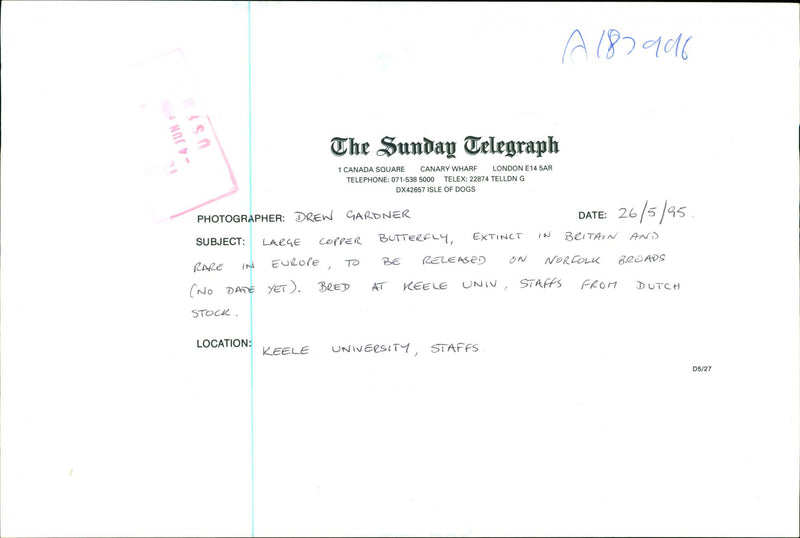 A187996
USED
- 4 JUN
The Sunday Telegraph
1 CANADA SQUARE CANARY WHARF LONDON E14 5AR
TELEPHONE: 071-538 5000 TELEX: 22874 TELLDN G
DX42657 ISLE OF DOGS
PHOTOGRAPHER: DREW GARDNER DATE: 26/5/95.
SUBJECT: LARGE COPPER BUTTERFLY, EXTINCT IN BRITAIN AND
RARE IN EUROPE, TO BE RELEASED ON NORFOLK BROADS
(NO DATE YET). BRED AT KEELE UNIV, STAFFS FROM DUTCH
STOCK.
LOCATION: KEELE UNIVERSITY, STAFFS.
D5/27